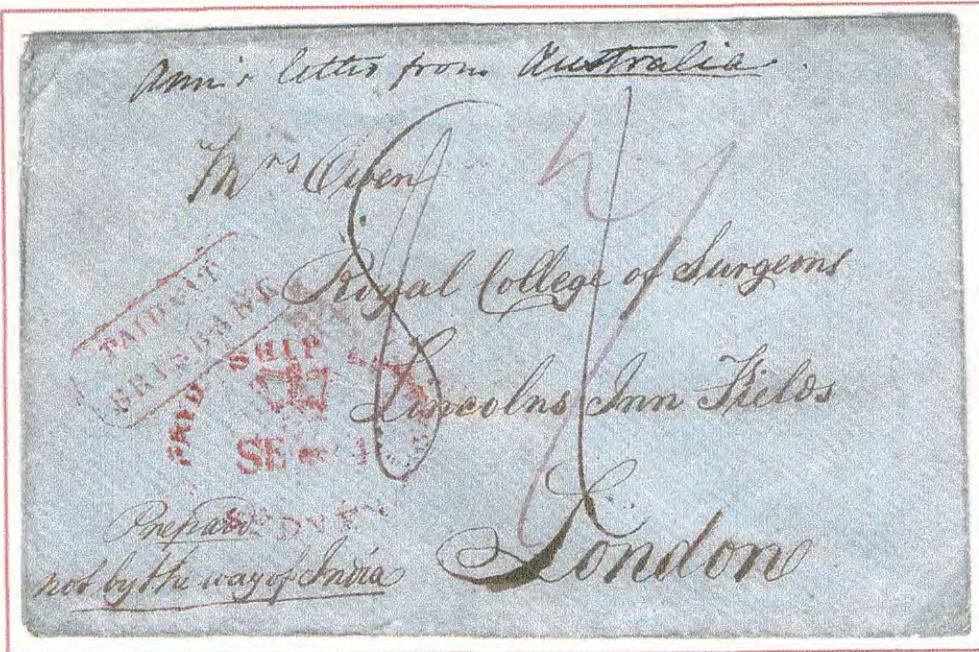 Ann's letter from Australia.
Mrs Owen
Royal College of Surgeons
Lincolns Inn Fields
London
PAID AT
BRISBANE
PAID SHIP
SE 1
SYDNEY
Prepaid
not by the way of India